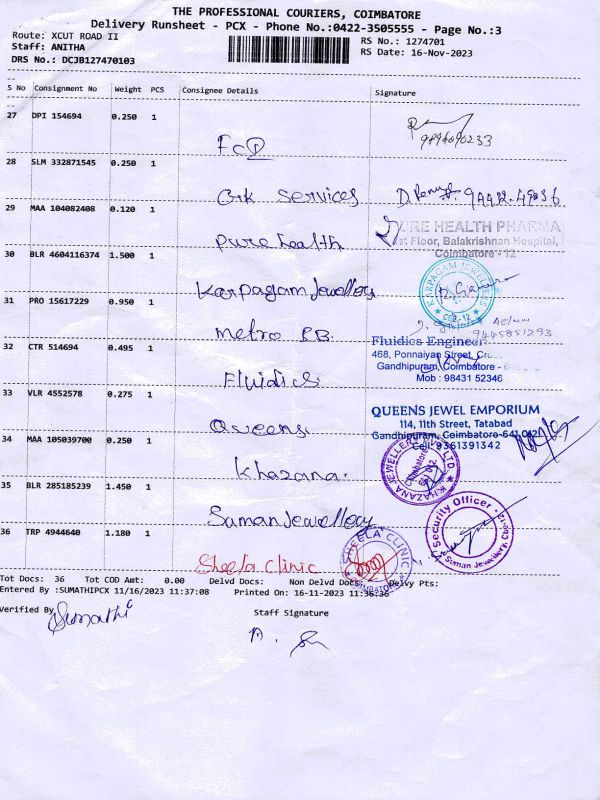 THE PROFESSIONAL COURIERS, COIMBATORE
Delivery Runsheet - PCX - Phone No.:0422-3505555 - Page No.:3
Route: XCUT ROAD II
RS No.: 1274701
Staff: ANITHA
RS Date: 16-Nov-2023
DRS No.: DCJB127470103
S No Consignment No Weight PCS Consignee Details Signature
27 DPI 154694 0.250 1
FCI
28 SLM 332871545 0.250 1
Grk services 94422-49036
29 MAA 104082408 0.120 1
Pure health
PURE HEALTH PHARMA
1st Floor, Balakrishnan Hospital,
Coimbatore - 12
30 BLR 4604116374 1.500 1
Karpagam Jewellery
KARPAGAM JEWELLERS
CBE-12
31 PRO 15617229 0.950 1
Metro PB. 9445851293
32 CTR 514694 0.495 1
Fluidics
Fluidics Engineer
468, Ponnaiyan Street, Cross
Gandhipuram, Coimbatore -
Mob : 98431 52346
33 VLR 4552578 0.275 1
Queens
QUEENS JEWEL EMPORIUM
114, 11th Street, Tatabad
Gandhipuram, Coimbatore-641 012
Cell: 9361391342
34 MAA 105039700 0.250 1
Khazana.
KHAZANA JEWELLERY LTD.
Coimbatore
35 BLR 285185239 1.450 1
Suman Jewellery
Security Officer
Suman Jewellery
36 TRP 4944640 1.180 1
Sheela Clinic
SHEELA CLINIC
COIMBATORE
Tot Docs: 36 Tot COD Amt: 0.00 Delvd Docs: Non Delvd Docs: Delvy Pts:
Entered By :SUMATHIPCX 11/16/2023 11:37:08 Printed On: 16-11-2023 11:36:36
Verified By
Sumathi
Staff Signature